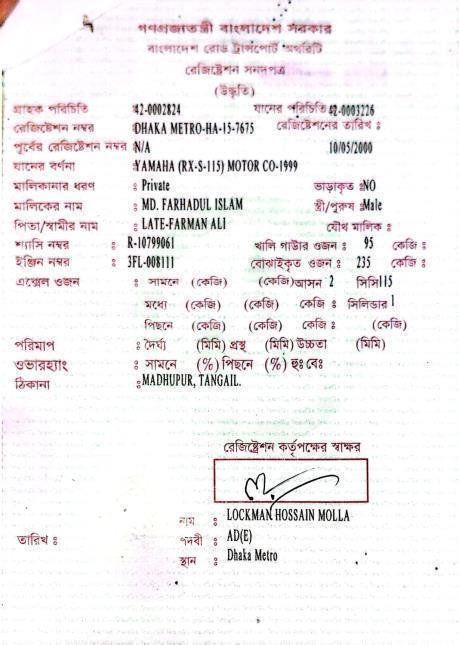 গণপ্রজাতন্ত্রী বাংলাদেশ সরকার
বাংলাদেশ রোড ট্রান্সপোর্ট অথরিটি
রেজিষ্ট্রেশন সনদপত্র
(উদ্ধৃতি)
গ্রাহক পরিচিতি :42-0002824 যানের পরিচিতি :42-0003226
রেজিষ্ট্রেশন নম্বর :DHAKA METRO-HA-15-7675 রেজিষ্ট্রেশনের তারিখ :
পূর্বের রেজিষ্ট্রেশন নম্বর :N/A 10/05/2000
যানের বর্ণনা :YAMAHA (RX-S-115) MOTOR CO-1999
মালিকানার ধরণ : Private ভাড়াকৃত :NO
মালিকের নাম : MD. FARHADUL ISLAM স্ত্রী/পুরুষ :Male
পিতা/স্বামীর নাম : LATE-FARMAN ALI যৌথ মালিক :
শ্যাসি নম্বর : R-10799061 খালি গাউার ওজন : 95 কেজি :
ইঞ্জিন নম্বর : 3FL-008111 বোঝাইকৃত ওজন : 235 কেজি :
এক্সেল ওজন : সামনে (কেজি) (কেজি) আসন 2 সিসি115
মধ্যে (কেজি) (কেজি) কেজি : সিলিন্ডার 1
পিছনে (কেজি) (কেজি) কেজি : (কেজি)
পরিমাপ : দৈর্ঘ্য (মিমি) প্রস্থ (মিমি) উচ্চতা (মিমি)
ওভারহ্যাং : সামনে (%) পিছনে (%) হুঃ বেঃ
ঠিকানা :MADHUPUR, TANGAIL.
রেজিষ্ট্রেশন কর্তৃপক্ষের স্বাক্ষর
নাম : LOCKMAN HOSSAIN MOLLA
তারিখ : পদবী : AD(E)
স্থান : Dhaka Metro